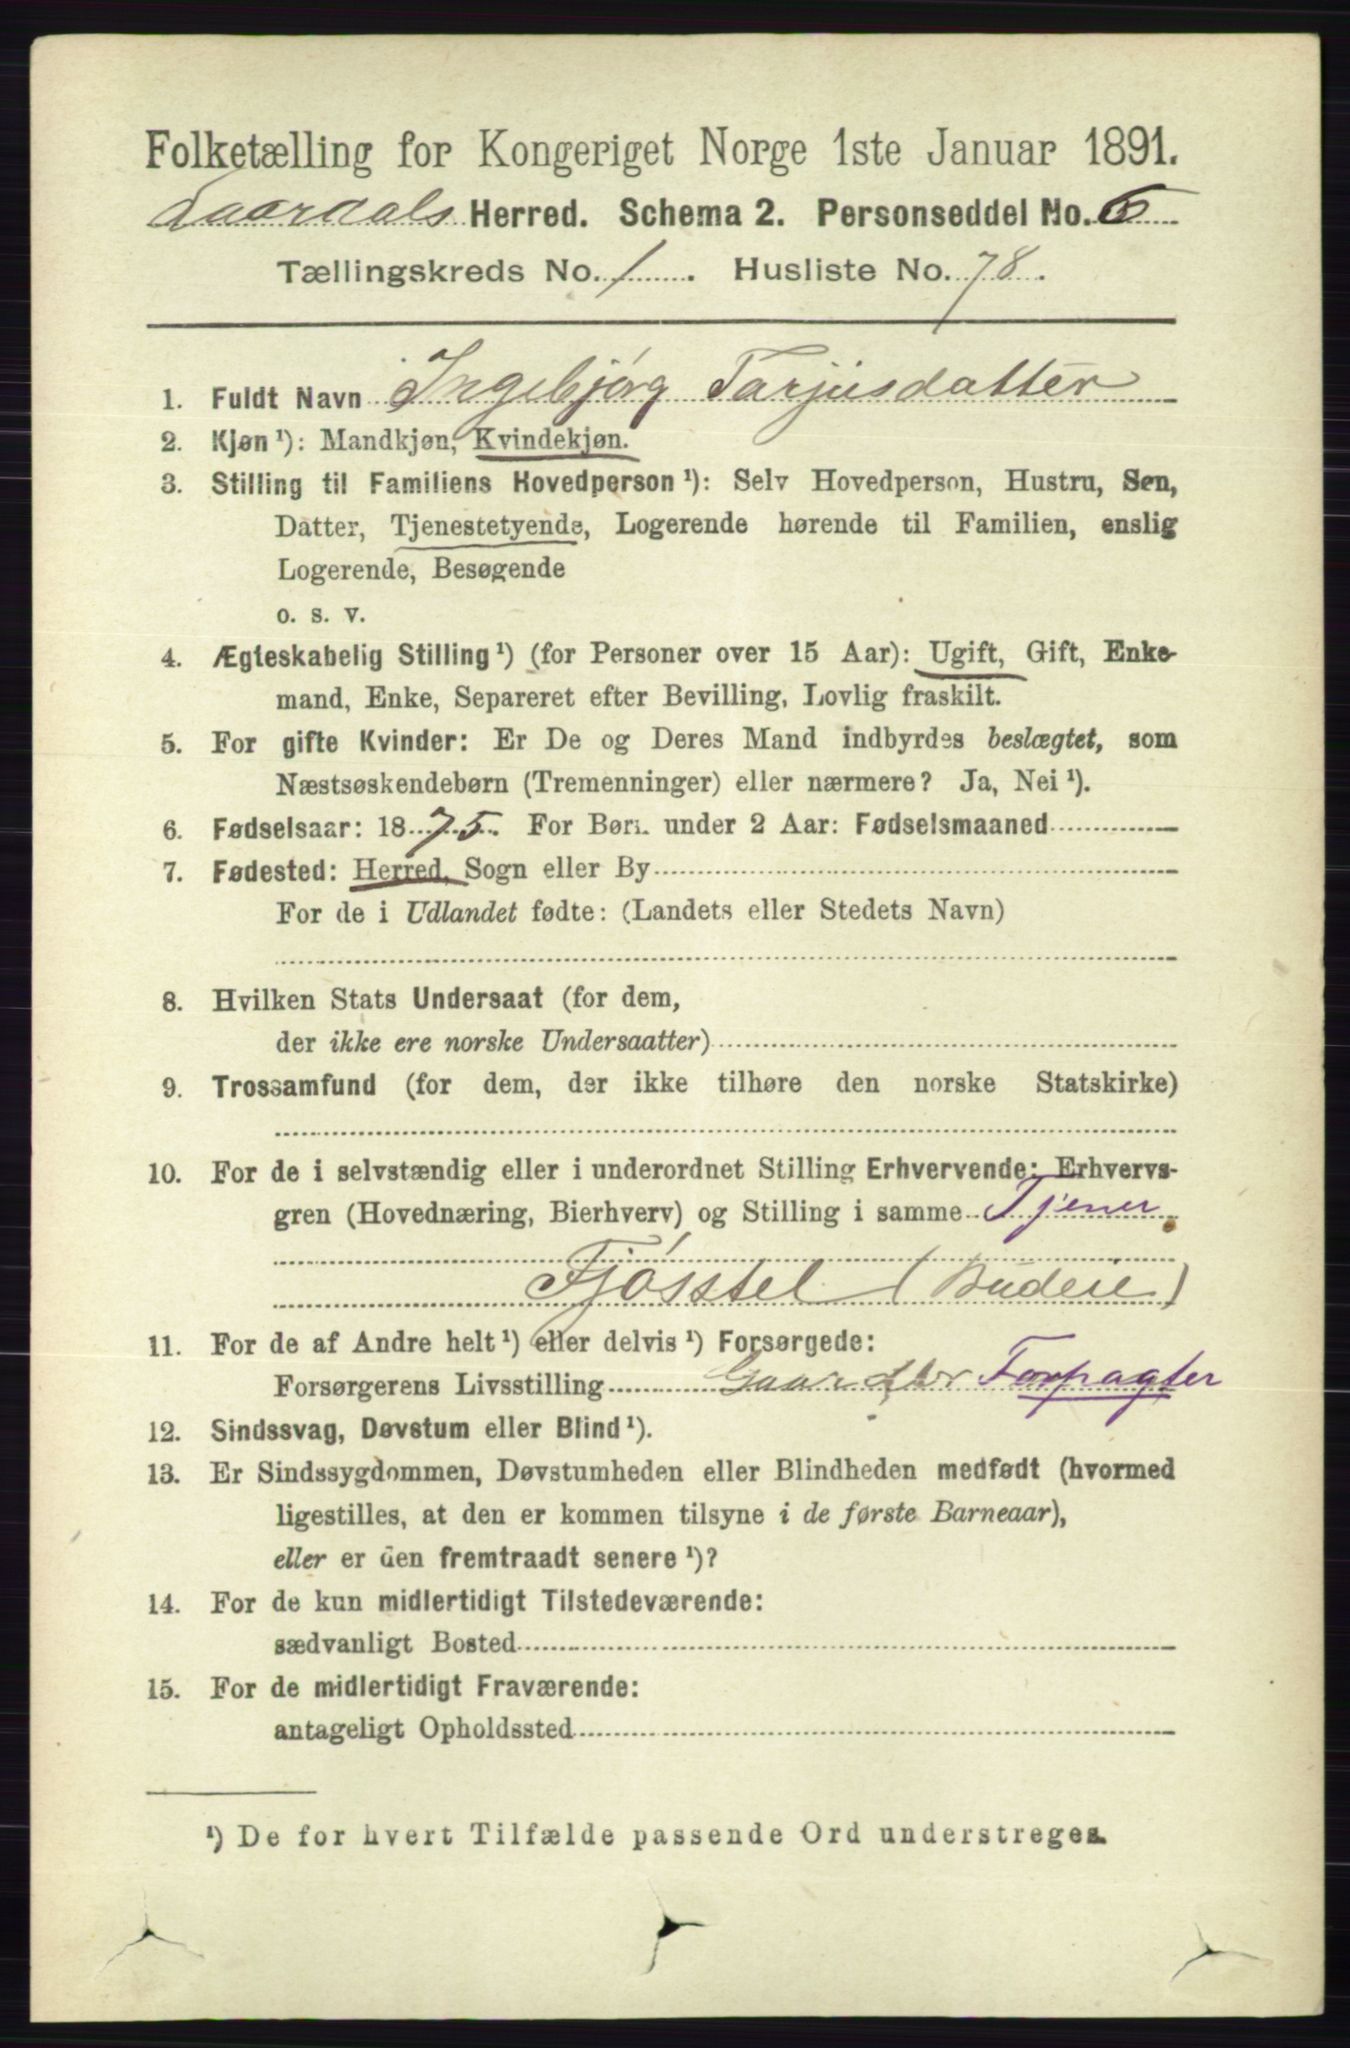 Folketælling for Kongeriget Norge 1ste Januar 1891.
Laardals Herred. Schema 2. Personseddel No. 6
Tællingskreds No. 1. Husliste No. 78.
1. Fuldt Navn Ingebjørg Tarjusdatter
2. Kjøn ¹): Mandkjøn, Kvindekjøn.
3. Stilling til Familiens Hovedperson ¹): Selv Hovedperson, Hustru, Søn,
Datter, Tjenestetyende, Logerende hørende til Familien, enslig
Logerende, Besøgende
o. s. v.
4. Ægteskabelig Stilling ¹) (for Personer over 15 Aar): Ugift, Gift, Enke-
mand, Enke, Separeret efter Bevilling, Lovlig fraskilt.
5. For gifte Kvinder: Er De og Deres Mand indbyrdes beslægtet, som
Næstsøskendebørn (Tremenninger) eller nærmere? Ja, Nei ¹).
6. Fødselsaar: 1875. For Børn under 2 Aar: Fødselsmaaned
7. Fødested: Herred, Sogn eller By
For de i Udlandet fødte: (Landets eller Stedets Navn)
8. Hvilken Stats Undersaat (for dem,
der ikke ere norske Undersaatter)
9. Trossamfund (for dem, der ikke tilhøre den norske Statskirke)
10. For de i selvstændig eller i underordnet Stilling Erhvervende: Erhvervs-
gren (Hovednæring, Bierhverv) og Stilling i samme Tjener
Fjøsstel (Budeie)
11. For de af Andre helt ¹) eller delvis ¹) Forsørgede:
Forsørgerens Livsstilling Forpagter
12. Sindssvag, Døvstum eller Blind ¹).
13. Er Sindssygdommen, Døvstumheden eller Blindheden medfødt (hvormed
ligestilles, at den er kommen tilsyne i de første Barneaar),
eller er den fremtraadt senere ¹)?
14. For de kun midlertidigt Tilstedeværende:
sædvanligt Bosted
15. For de midlertidigt Fraværende:
antageligt Opholdssted
¹) De for hvert Tilfælde passende Ord understreges.